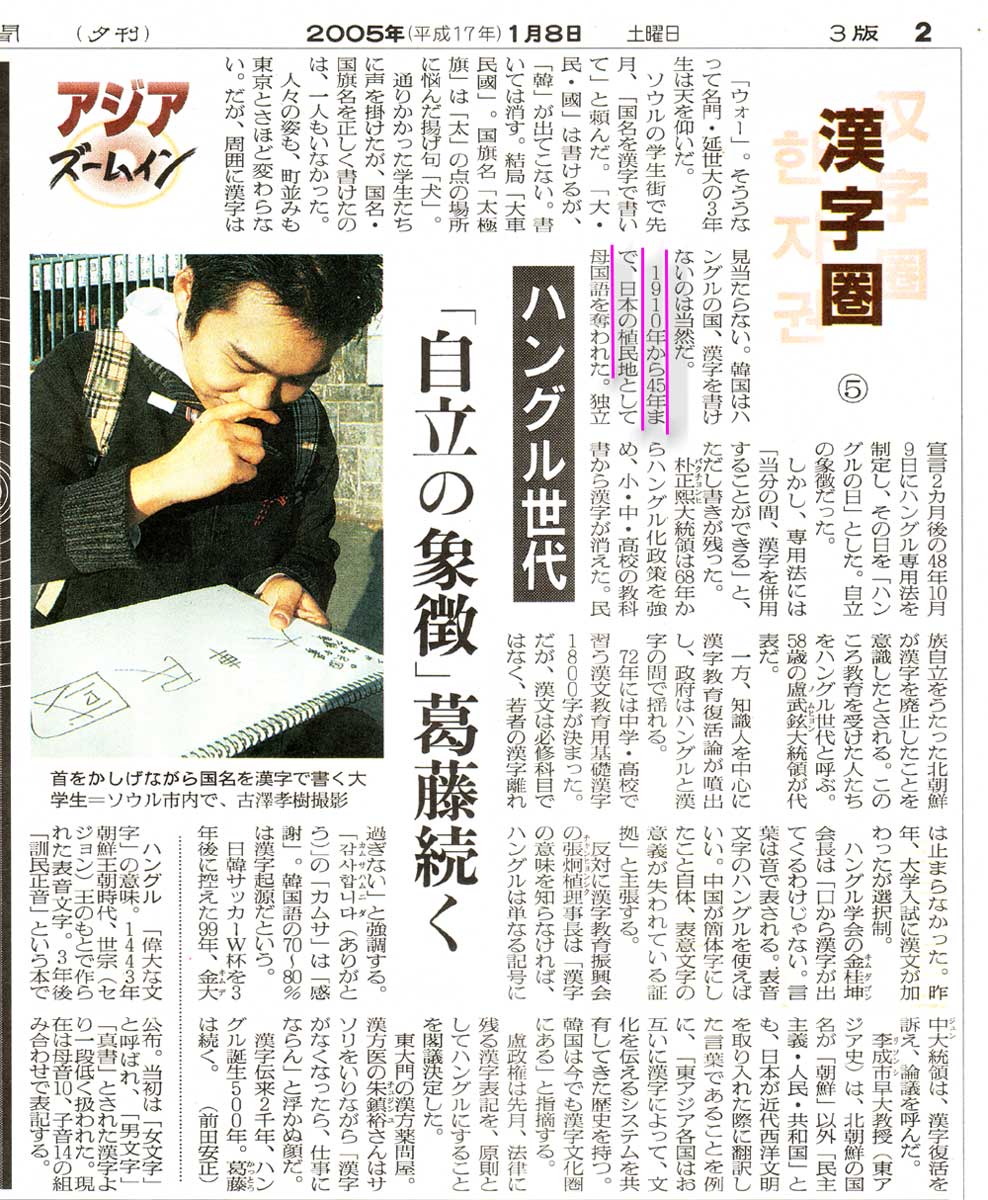 聞 （夕刊） 2005年（平成17年）1月8日 土曜日 3版 2
汉字圈
한자권
漢字圏
⑤
アジア
ズームイン
「ウォー」。そううな
って名門・延世大の3年
生は天を仰いだ。
ソウルの学生街で先
月、「国名を漢字で書い
て」と頼んだ。「大・
民・國」は書けるが、
「韓」が出てこない。書
いては消す。結局「大車
民國」。国旗名「太極
旗」は「太」の点の場所
に悩んだ揚げ句「犬」。
通りかかった学生たち
に声を掛けたが、国名・
国旗名を正しく書けたの
は、一人もいなかった。
人々の姿も、町並みも
東京とさほど変わらな
い。だが、周囲に漢字は
見当たらない。韓国はハ
ングルの国、漢字を書け
ないのは当然だ。
1910年から45年ま
で、日本の植民地として
母国語を奪われた。独立
ハングル世代
「自立の象徴」葛藤続く
宣言2カ月後の48年10月
9日にハングル専用法を
制定し、その日を「ハン
グルの日」とした。自立
の象徴だった。
しかし、専用法には
「当分の間、漢字を併用
することができる」と、
ただし書きが残った。
朴正熙大統領は68年か
らハングル化政策を強
め、小・中・高校の教科
書から漢字が消えた。民
族自立をうたった北朝鮮
が漢字を廃止したことを
意識したとされる。この
ころ教育を受けた人たち
をハングル世代と呼ぶ。
58歳の盧武鉉大統領が代
表だ。
一方、知識人を中心に
漢字教育復活論が噴出
し、政府はハングルと漢
字の間で揺れる。
72年には中学・高校で
習う漢文教育用基礎漢字
1800字が決まった。
だが、漢文は必修科目で
はなく、若者の漢字離れ
は止まらなかった。昨
年、大学入試に漢文が加
わったが選択制。
ハングル学会の金桂坤
会長は「口から漢字が出
てくるわけじゃない。言
葉は音で表される。表音
文字のハングルを使えば
いい。中国が簡体字にし
たこと自体、表意文字の
意義が失われている証
拠」と主張する。
反対に漢字教育振興会
の張炯植理事長は「漢字
の意味を知らなければ、
ハングルは単なる記号に
過ぎない」と強調する。
「감사합니다（ありがと
う）」の「カムサ」は「感
謝」。韓国語の70〜80%
は漢字起源だという。
日韓サッカーW杯を3
年後に控えた99年、金大
中大統領は、漢字復活を
訴え、論議を呼んだ。
李成市早大教授（東ア
ジア史）は、北朝鮮の国
名が「朝鮮」以外「民主
主義・人民・共和国」と
も、日本が近代西洋文明
を取り入れた際に翻訳し
た言葉であることを例
に、「東アジア各国はお
互いに漢字によって、文
化を伝えるシステムを共
有してきた歴史を持つ。
韓国は今でも漢字文化圏
にある」と指摘する。
盧政権は先月、法律に
残る漢字表記を、原則と
してハングルにすること
を閣議決定した。
東大門の漢方薬問屋。
漢方医の朱鎮裕さんはサ
ソリをいりながら「漢字
がなくなったら、仕事に
ならん」と浮かぬ顔だ。
漢字伝来2千年、ハン
グル誕生500年。葛藤
は続く。 （前田安正）
首をかしげながら国名を漢字で書く大
学生＝ソウル市内で、古澤孝樹撮影
ハングル 「偉大な文
字」の意味。1443年
朝鮮王朝時代、世宗（セ
ジョン）王のもとで作ら
れた表音文字。3年後
「訓民正音」という本で
公布。当初は「女文字」
と呼ばれ、「男文字」
「真書」とされた漢字よ
り一段低く扱われた。現
在は母音10、子音14の組
み合わせで表記する。